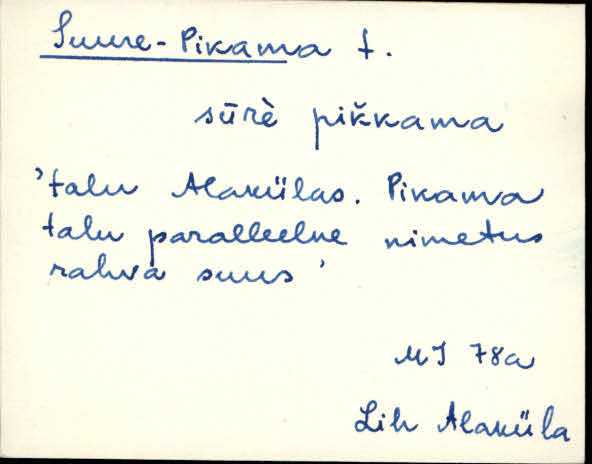 Suure-Pikama t.
sūrè pikkama
'talu Alakülas. Pikama
talu paralleelne nimetus
rahva suus'
MJ 78a
Lih Alaküla